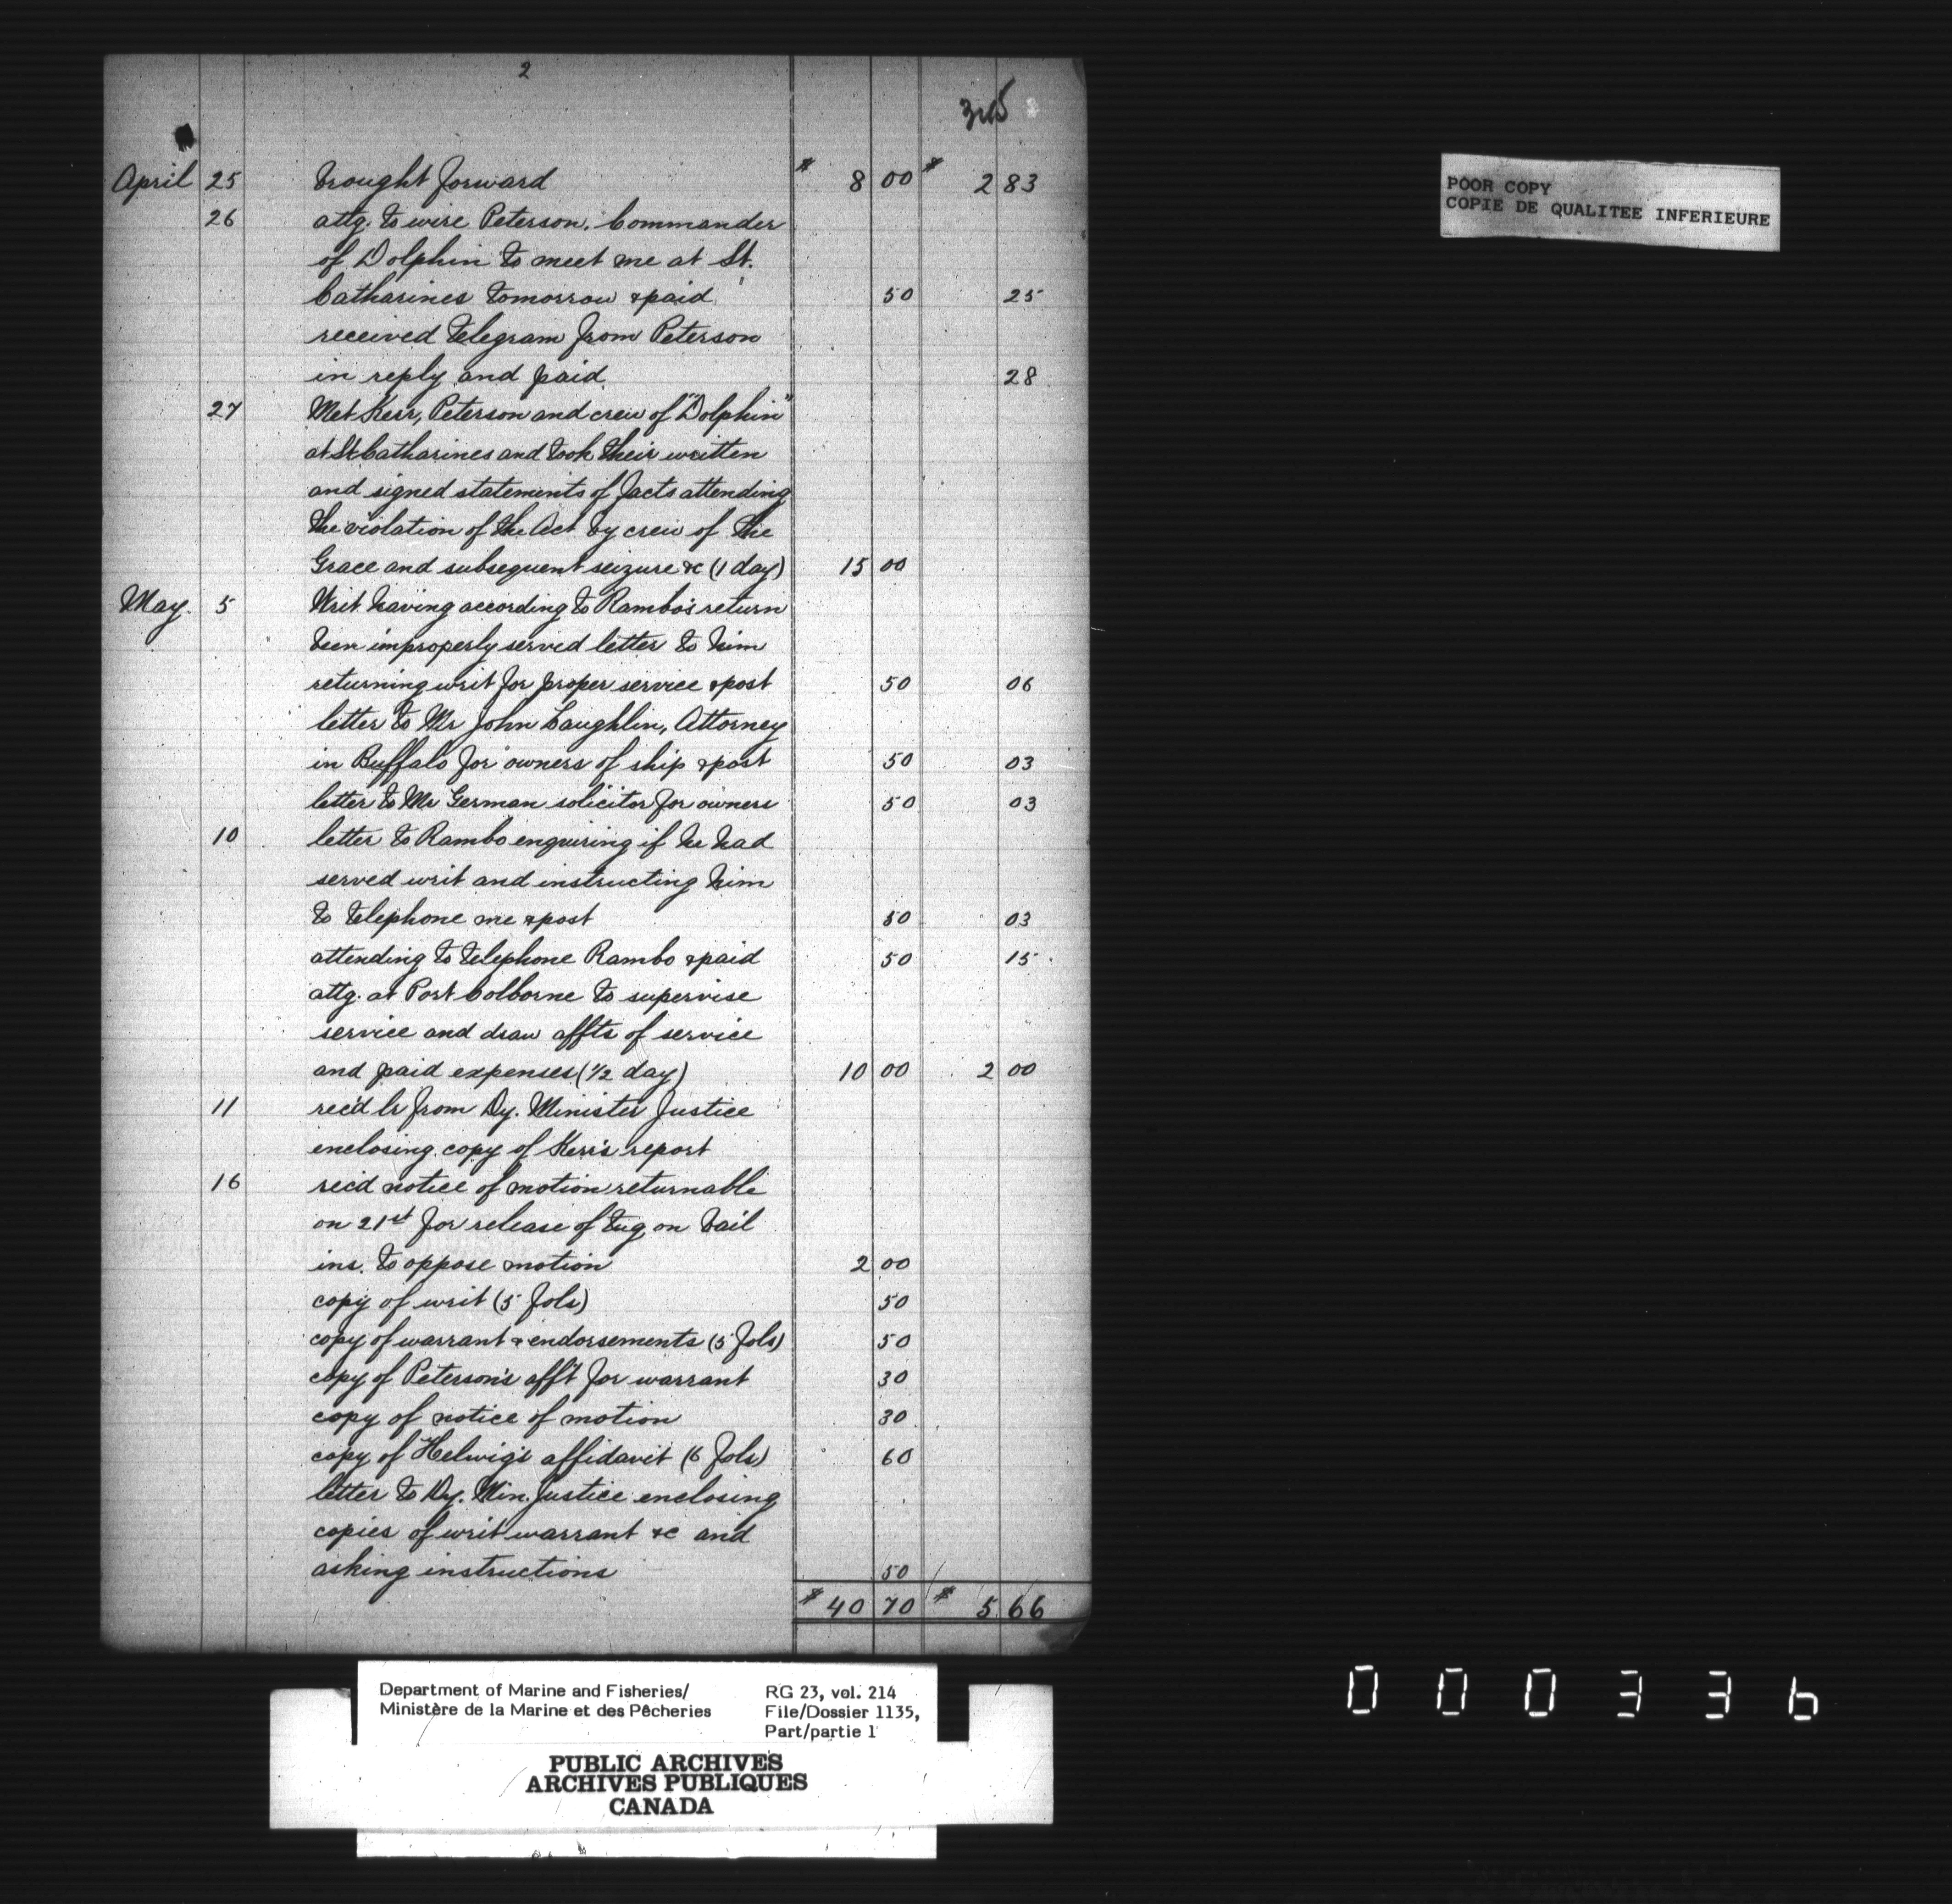 2
345
April 25 brought forward $ 8 00 $ 2 83
26 attg. to wire Peterson, Commander
of Dolphin to meet me at St.
Catharines tomorrow & paid 50 25
received telegram from Peterson
in reply and paid 28
27 Met Kerr, Peterson and crew of "Dolphin"
at St Catharines and took their written
and signed statements of facts attending
the violation of the Act by crew of the
Grace and subsequent seizure &c (1 day) 15 00
May. 5 Writ having according to Rambo's return
been improperly served letter to him
returning writ for proper service & post 50 06
letter to Mr John Laughlin, Attorney
in Buffalo for owners of ship & post 50 03
letter to Mr German solicitor for owners 50 03
10 letter to Rambo enquiring if he had
served writ and instructing him
to telephone me & post 50 03
attending to telephone Rambo & paid 50 15
attg. at Port Colborne to supervise
service and draw affts of service
and paid expenses (1/2 day) 10 00 2 00
11 rec'd lr from Dy. Minister Justice
enclosing copy of Kerr's report
16 rec'd notice of motion returnable
on 21st for release of tug on bail
ins. to oppose motion 2 00
copy of writ (5 fols) 50
copy of warrant & endorsements (5 fols) 50
copy of Peterson's afft for warrant 30
copy of notice of motion 30
copy of Helwig's affidavit (6 fols) 60
letter to Dy. Min. Justice enclosing
copies of writ warrant &c and
asking instructions 50
$ 40 70 $ 5 66
POOR COPY
COPIE DE QUALITEE INFERIEURE
Department of Marine and Fisheries/
Ministère de la Marine et des Pêcheries
RG 23, vol. 214
File/Dossier 1135,
Part/partie 1
PUBLIC ARCHIVES
ARCHIVES PUBLIQUES
CANADA
000336